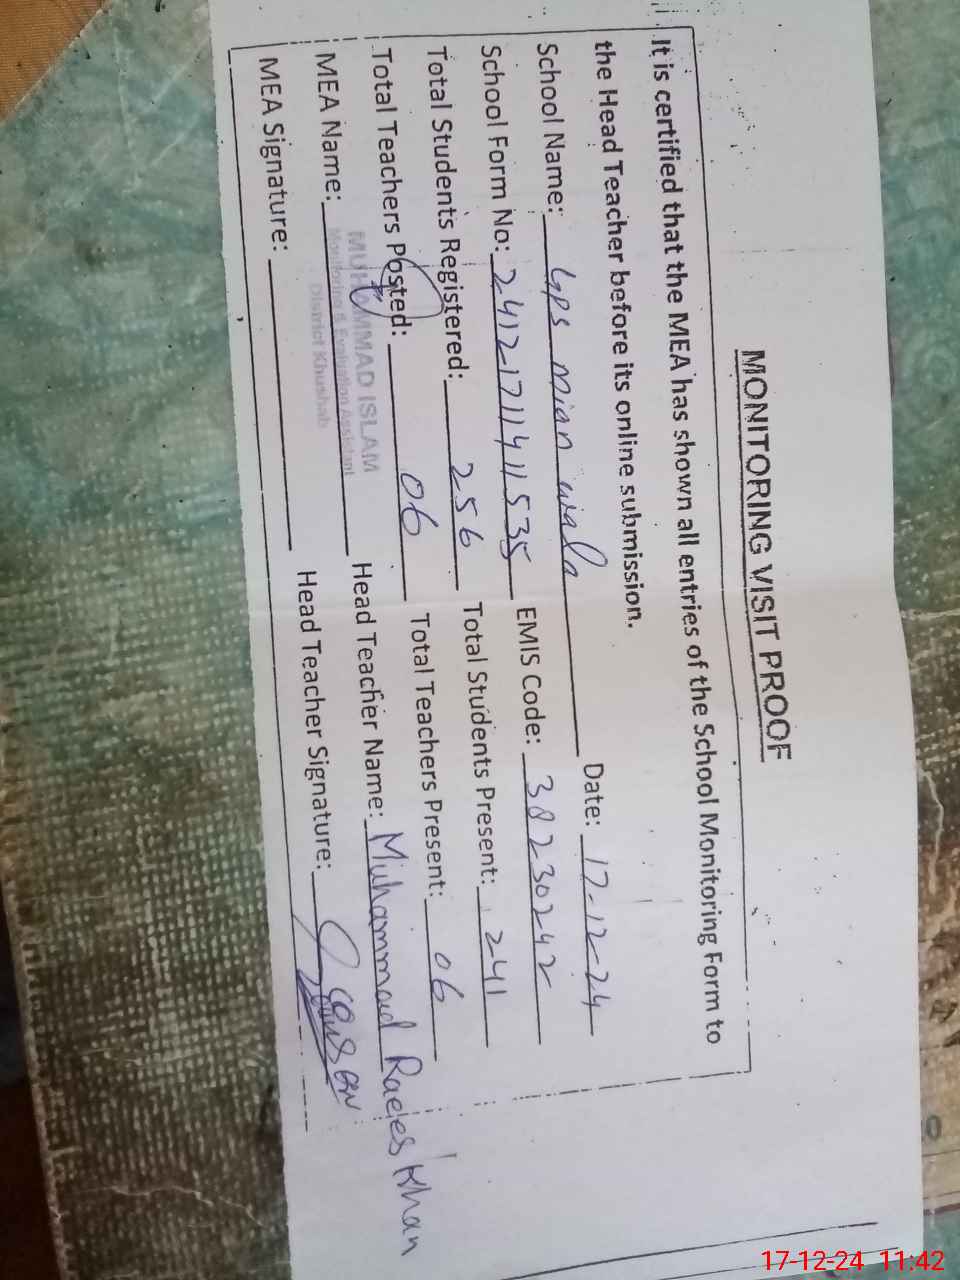 MONITORING VISIT PROOF
It is certified that the MEA has shown all entries of the School Monitoring Form to
the Head Teacher before its online submission.
School Name: GPS Mian wala Date: 17-12-24
School Form No: 24121711411535 EMIS Code: 38230242
Total Students Registered: 256 Total Students Present: 241
Total Teachers Posted: 06 Total Teachers Present: 06
MEA Name: Head Teacher Name: Muhammad Raees Khan
MUHAMMAD ISLAM
Monitoring & Evaluation Assistant
District Khushab
MEA Signature: Head Teacher Signature:
17-12-24 11:42